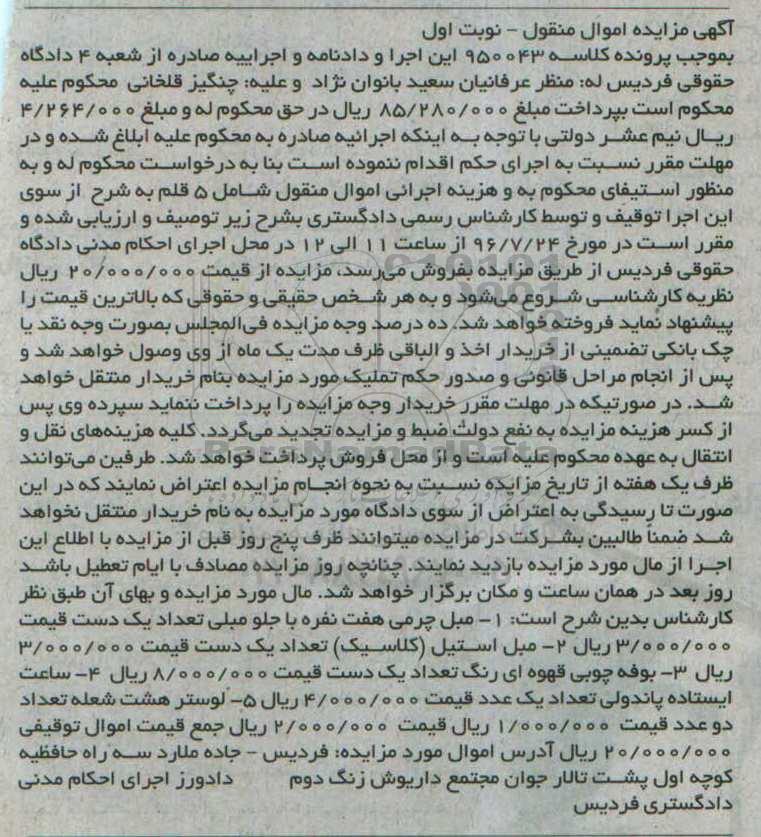 آگهی مزایده اموال منقول - نوبت اول
بموجب پرونده کلاسه ۹۵۰۰۴۳ این اجرا و دادنامه و اجراییه صادره از شعبه ۴ دادگاه
حقوقی فردیس له: منظر عرفانیان سعید بانوان نژاد و علیه: چنگیز قلخانی محکوم علیه
محکوم است بپرداخت مبلغ ۸۵/۲۸۰/۰۰۰ ریال در حق محکوم له و مبلغ ۴/۲۶۴/۰۰۰
ریال نیم عشر دولتی با توجه به اینکه اجرائیه صادره به محکوم علیه ابلاغ شده و در
مهلت مقرر نسبت به اجرای حکم اقدام ننموده است بنا به درخواست محکوم له و به
منظور استیفای محکوم به و هزینه اجرائی اموال منقول شامل ۵ قلم به شرح از سوی
این اجرا توقیف و توسط کارشناس رسمی دادگستری بشرح زیر توصیف و ارزیابی شده و
مقرر است در مورخ ۹۶/۷/۲۴ از ساعت ۱۱ الی ۱۲ در محل اجرای احکام مدنی دادگاه
حقوقی فردیس از طریق مزایده بفروش می‌رسد، مزایده از قیمت ۲۰/۰۰۰/۰۰۰ ریال
نظریه کارشناسی شروع می‌شود و به هر شخص حقیقی و حقوقی که بالاترین قیمت را
پیشنهاد نماید فروخته خواهد شد. ده درصد وجه مزایده فی‌المجلس بصورت وجه نقد یا
چک بانکی تضمینی از خریدار اخذ و الباقی ظرف مدت یک ماه از وی وصول خواهد شد و
پس از انجام مراحل قانونی و صدور حکم تملیک مورد مزایده بنام خریدار منتقل خواهد
شد. در صورتیکه در مهلت مقرر خریدار وجه مزایده را پرداخت ننماید سپرده وی پس
از کسر هزینه مزایده به نفع دولت ضبط و مزایده تجدید می‌گردد. کلیه هزینه‌های نقل و
انتقال به عهده محکوم علیه است و از محل فروش پرداخت خواهد شد. طرفین می‌توانند
ظرف یک هفته از تاریخ مزایده نسبت به نحوه انجام مزایده اعتراض نمایند که در این
صورت تا رسیدگی به اعتراض از سوی دادگاه مورد مزایده به نام خریدار منتقل نخواهد
شد ضمناً طالبین بشرکت در مزایده میتوانند ظرف پنج روز قبل از مزایده با اطلاع این
اجرا از مال مورد مزایده بازدید نمایند. چنانچه روز مزایده مصادف با ایام تعطیل باشد
روز بعد در همان ساعت و مکان برگزار خواهد شد. مال مورد مزایده و بهای آن طبق نظر
کارشناس بدین شرح است: ۱- مبل چرمی هفت نفره با جلو مبلی تعداد یک دست قیمت
۳/۰۰۰/۰۰۰ ریال ۲- مبل استیل (کلاسیک) تعداد یک دست قیمت ۳/۰۰۰/۰۰۰
ریال ۳- بوفه چوبی قهوه ای رنگ تعداد یک دست قیمت ۸/۰۰۰/۰۰۰ ریال ۴- ساعت
ایستاده پاندولی تعداد یک عدد قیمت ۴/۰۰۰/۰۰۰ ریال ۵- لوستر هشت شعله تعداد
دو عدد قیمت ۱/۰۰۰/۰۰۰ ریال قیمت ۲/۰۰۰/۰۰۰ ریال جمع قیمت اموال توقیفی
۲۰/۰۰۰/۰۰۰ ریال آدرس اموال مورد مزایده: فردیس - جاده ملارد سه راه حافظیه
کوچه اول پشت تالار جوان مجتمع داریوش زنگ دوم دادورز اجرای احکام مدنی
دادگستری فردیس